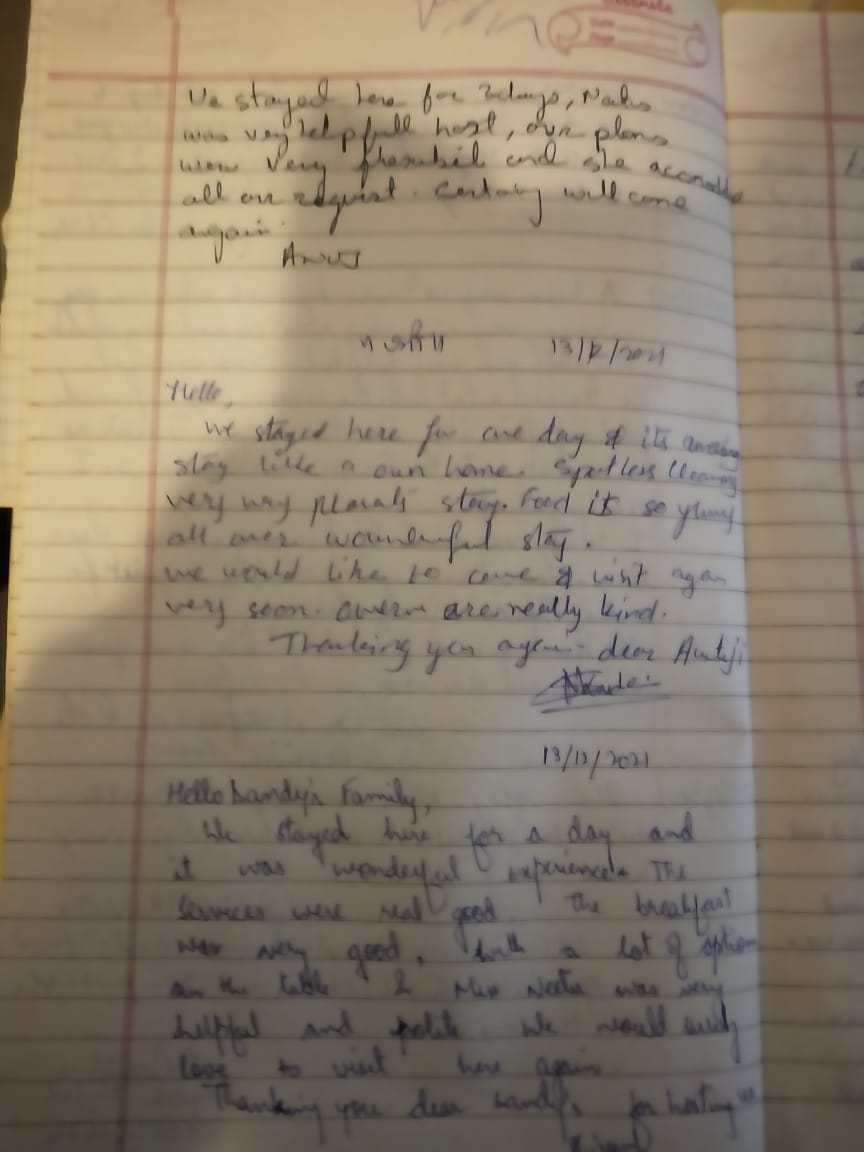 Date
Page
We stayed here for 2days,
was very helpfull host, our plans
were very and she
all our request. Certainly will come
again.
13/12/2021
Hello,
we stayed here for one day & its
stay like a own home. Spotless
very very stay. Food it so
all over stay.
we would like to come & visit again
very soon. are really kind.
Thanking you again dear
13/12/2021
Hello Family,
We stayed here for a day and
it was wonderful experience. The
services were real good The breakfast
was very good, with a lot of option
on the table & Miss was very
helpful and polite We would surely
love to visit here again
Thanking you dear for hosting us